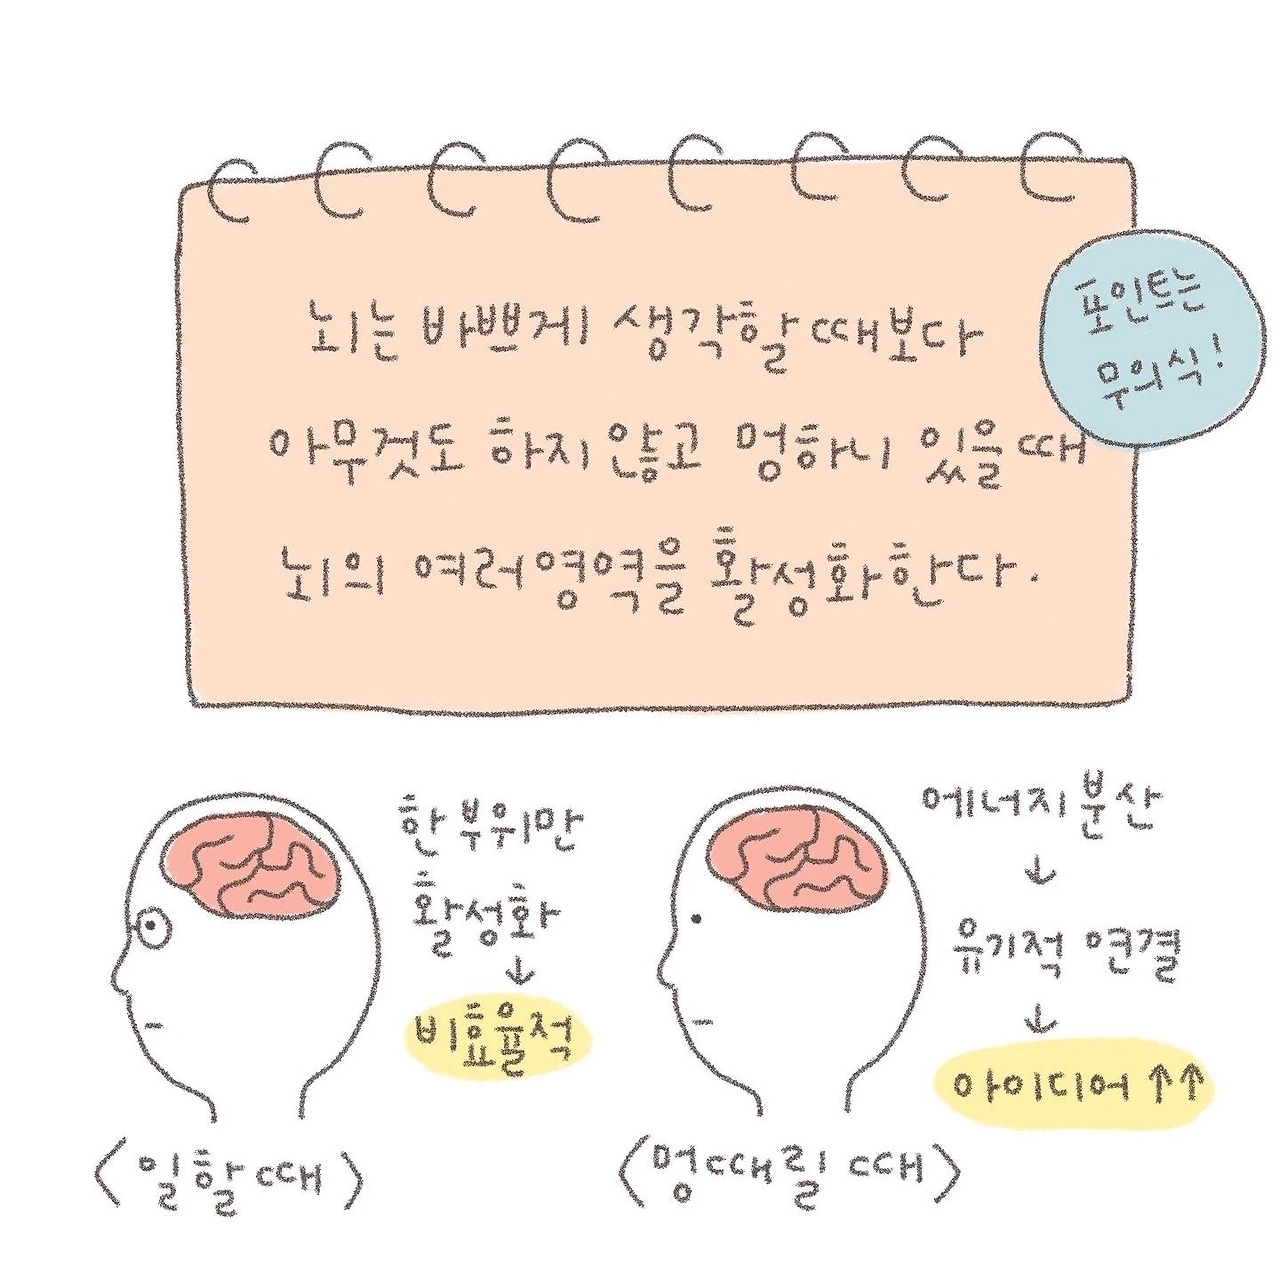 뇌는 바쁘게 생각할 때보다
아무것도 하지 않고 멍하니 있을 때
뇌의 여러 영역을 활성화한다.
포인트는
무의식!
한 부위만
활성화
↓
비효율적
<일할 때>
에너지 분산
↓
유기적 연결
↓
아이디어 ↑↑
<멍때릴 때>